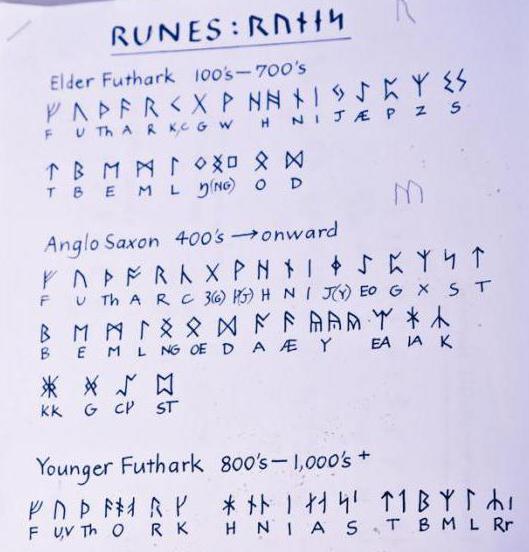 RUNES : ᚱᚢᚾᚾᛋ
Elder Futhark 100's — 700's
ᚠ ᚢ ᚦ ᚨ ᚱ ᚲ ᚷ ᚹ ᚺ ᚻ ᚾ ᛁ ᛃ ᛇ ᛈ ᛉ ᛊ ᛋ
F U Th A R K,C G W H N I J Æ P Z S
ᛏ ᛒ ᛖ ᛗ ᛚ ᛜ ᛝ □ ᛟ ᛞ
T B E M L Ŋ(NG) O D
Anglo Saxon 400's → onward
ᚠ ᚢ ᚦ ᚩ ᚱ ᚳ ᚷ ᚹ ᚻ ᚾ ᛁ ᛄ ᛇ ᛈ ᛉ ᛋ ᛏ
F U Th A R C Ȝ(G) H N I J(Y) EO G X S T
ᛒ ᛖ ᛗ ᛚ ᛝ ᛟ ᛞ ᚪ ᚫ ᚣ ᛠ ᛡ ᛣ
B E M L NG OE D A Æ Y EA IA K
KK G ST
Younger Futhark 800's — 1,000's +
ᚠ ᚢ ᚦ ᚬ ᚱ ᚴ ᚼ ᚾ ᚿ ᛁ ᛅ ᛆ ᛋ ᛌ ᛏ ᛐ ᛒ ᛘ ᛚ ᛦ
F U,V Th O R K H N I A S T B M L Rr